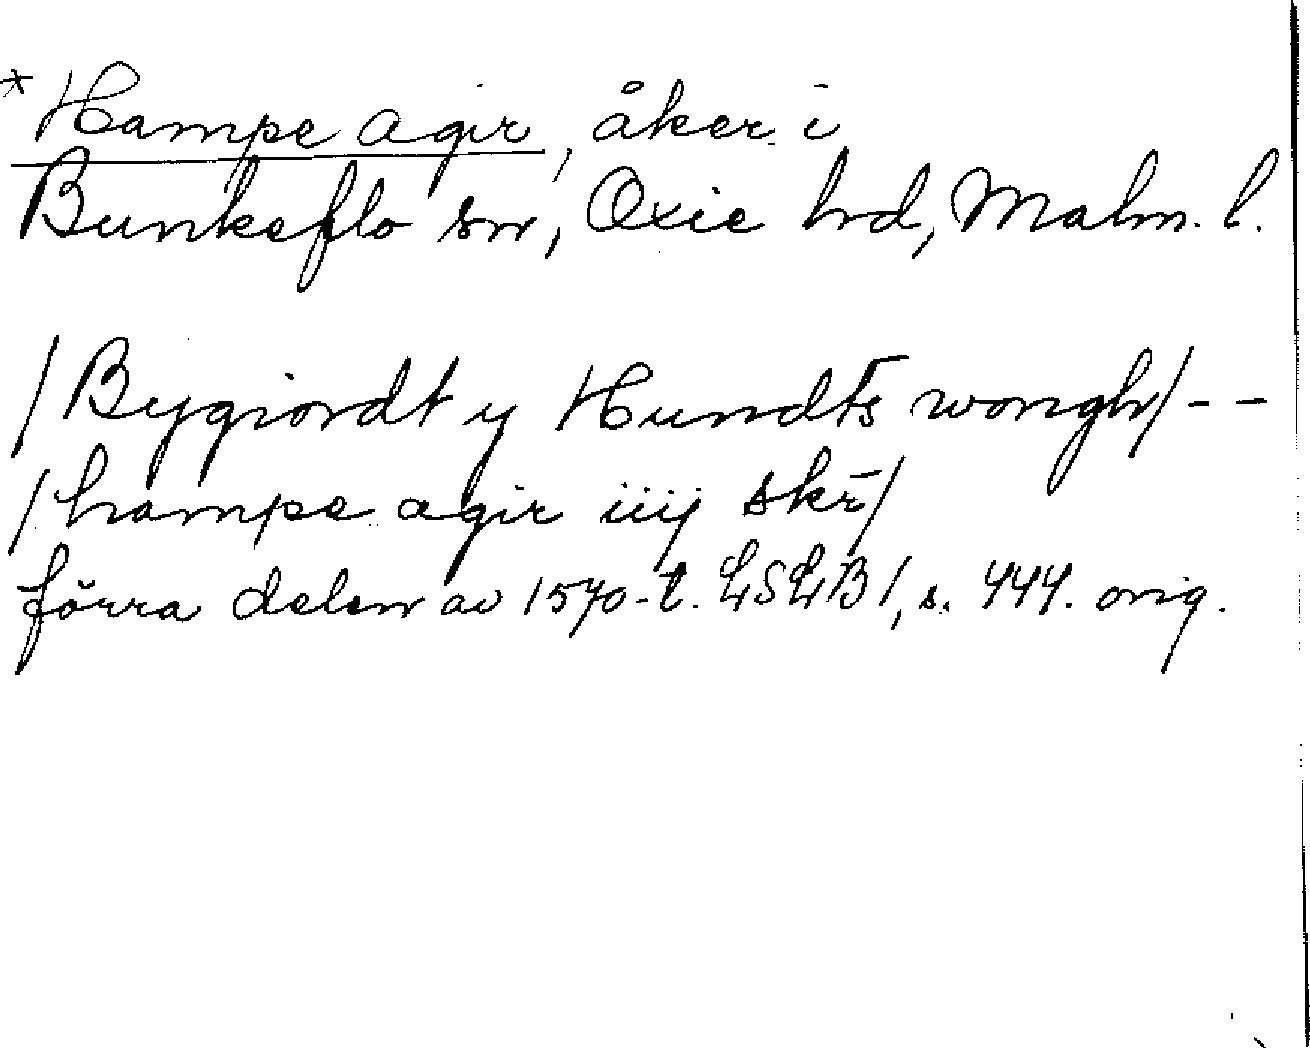 * Hampe agir, åker i
Bunkeflo sn, Oxie hd, Malm. l.
/Bygiordt y Hundts wongh/ - -
/hampe agir iiij skr̄/
förra delen av 1570-t. LSLB 1, s. 444. orig.